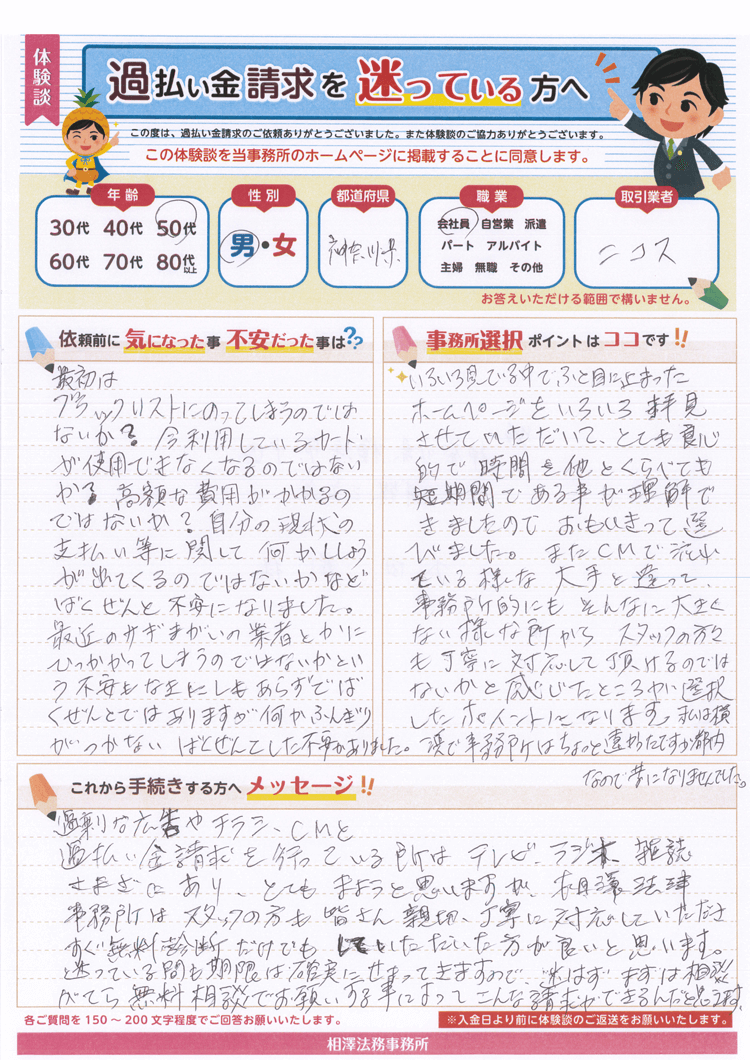 体験談
過払い金請求を迷っている方へ
この度は、過払い金請求のご依頼ありがとうございました。また体験談のご協力ありがとうございます。
この体験談を当事務所のホームページに掲載することに同意します。
年齢
30代 40代 50代
60代 70代 80代以上
性別
男・女
都道府県
神奈川県
職業
会社員 自営業 派遣
パート アルバイト
主婦 無職 その他
取引業者
ニコス
お答えいただける範囲で構いません。
依頼前に気になった事 不安だった事は??
最初は
ブラックリストにのってしまうのでは
ないか? 今利用しているカード
が使用できなくなるのではない
か? 高額な費用がかかるの
ではないか? 自分の現状の
支払い等に関して何かししょう
が出てくるのではないかなど
ばくぜんと不安になりました。
最近のサギまがいの業者とかに
ひっかかってしまうのではないかとい
う不安もなきにしもあらずでば
くぜんとではありますが何かふんぎり
がつかない ばくぜんとした不安がありました。
事務所選択ポイントはココです!!
いろいろ見ている中でふと目に止まった
ホームページをいろいろ拝見
させていただいて、とても良心
的で時間を他とくらべても
短期間である事が理解で
きましたので おもいきって選
びました。 またCMで流れ
ている様な 大手と違って、
事務所的にも そんなに大きく
ない様な所から スタッフの方々
も丁寧に対応して頂けるのでは
ないかと感じたところが選択
したポイントになります。私は横
浜で事務所はちょっと遠かったですが都内
なので苦になりませんでした。
これから手続きする方へメッセージ!!
過剰な広告やチラシ、CMと
過払い金請求を行っている所はテレビ、ラジオ、雑誌
さまざまにあり、とてもまようと思いますが、相澤法律
事務所はスタッフの方も皆さん親切、丁寧に対応していただき
すぐ無料診断だけでも していただいた方が良いと思います。
迷っている間も期限は確実にせまってきますので、まずは相談
がてら 無料相談でお願いする事によってこんな請求ができるんだと思います。
各ご質問を150～200文字程度でご回答お願いいたします。
※入金日より前に体験談のご返送をお願いいたします。
相澤法務事務所